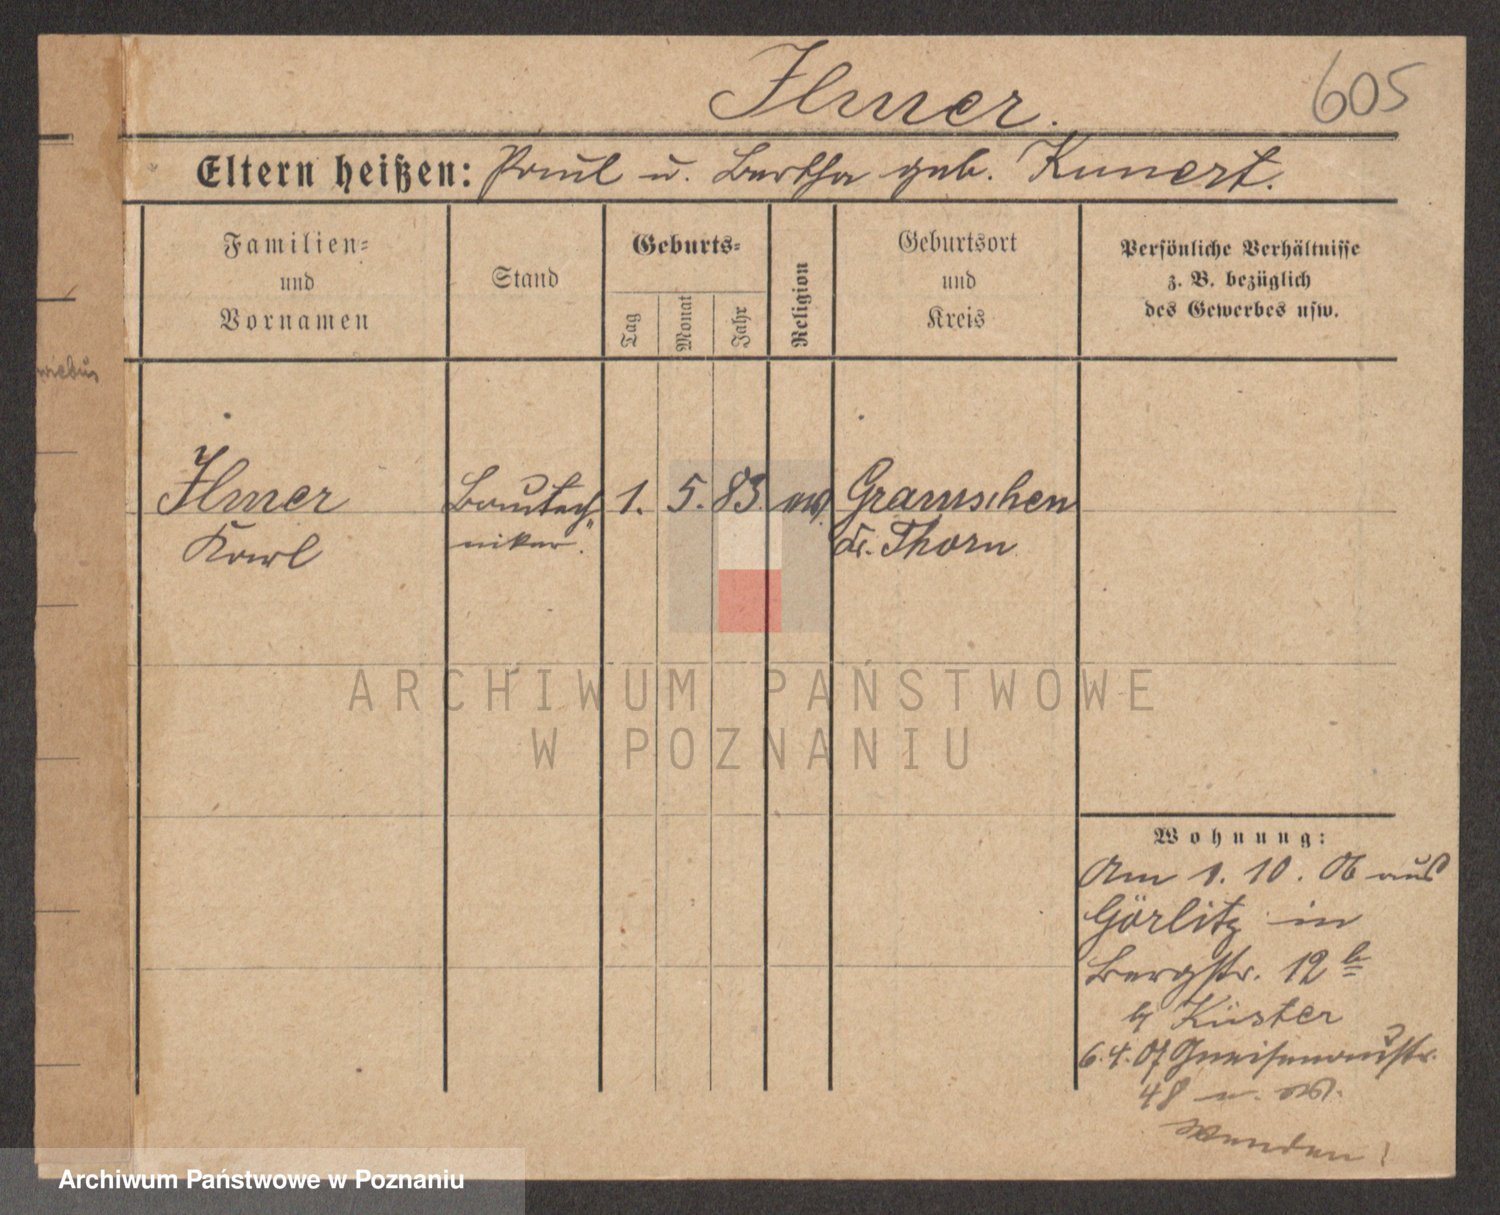 Ilmer.
605
Eltern heißen: Paul u. Bertha geb. Kunert.
Familien-
und
Vornamen
Stand
Geburts-
Tag
Monat
Jahr
Religion
Geburtsort
und
Kreis
Persönliche Verhältnisse
z. B. bezüglich
des Gewerbes usw.
Ilmer
Karl
Bautech-
niker.
1. 5. 83.
ev.
Gramschen
Kr. Thorn
ARCHIWUM PAŃSTWOWE
W POZNANIU
Wohnung:
Am 1. 10. 06 aus
Görlitz in
Bergstr. 12 b
b/ Küster
6. 4. 07 Gneisenaustr.
48
wenden!
Archiwum Państwowe w Poznaniu